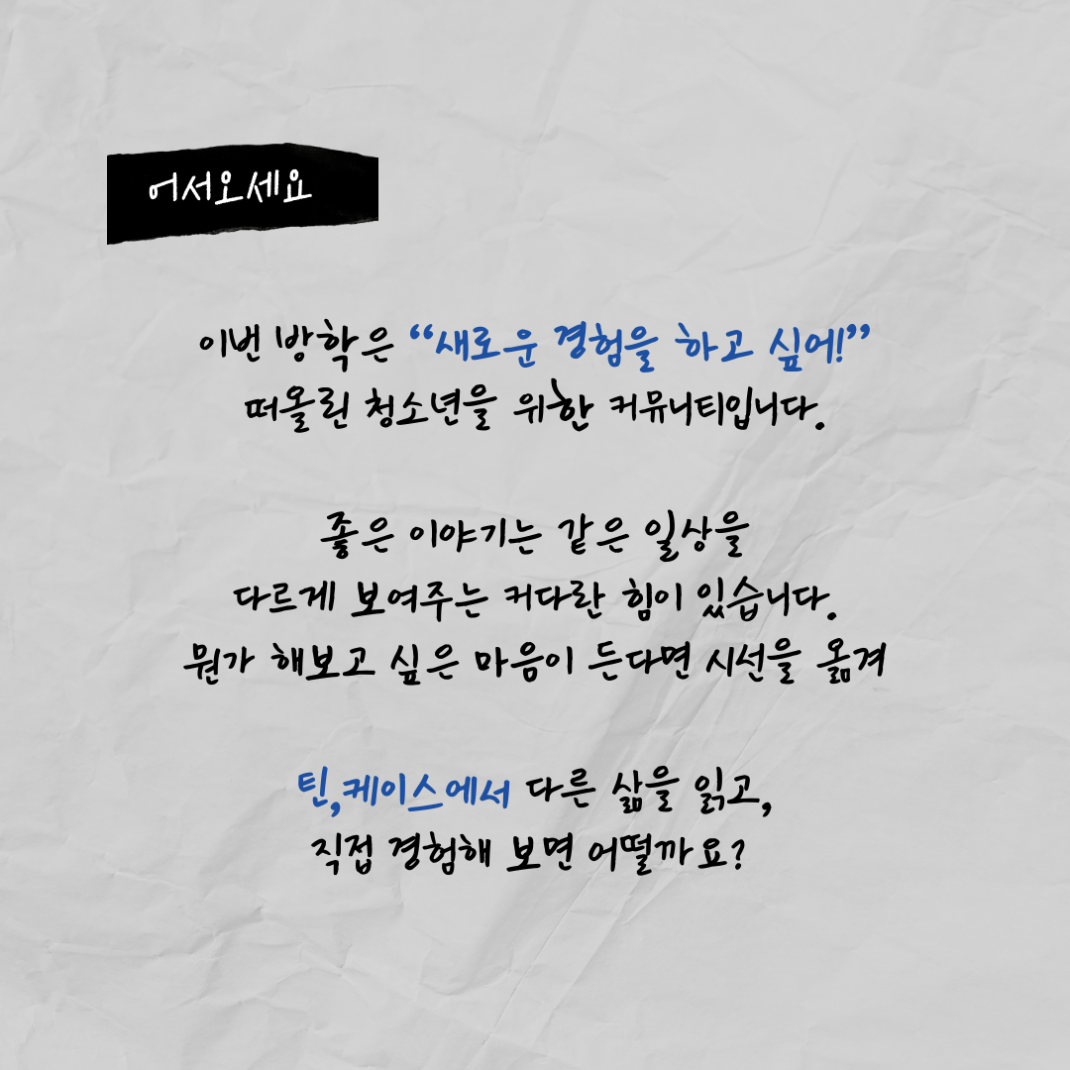 어서오세요
이번 방학은 “새로운 경험을 하고 싶어!”
떠올린 청소년을 위한 커뮤니티입니다.
좋은 이야기는 같은 일상을
다르게 보여주는 커다란 힘이 있습니다.
뭔가 해보고 싶은 마음이 든다면 시선을 옮겨
틴,케이스에서 다른 삶을 읽고,
직접 경험해 보면 어떨까요?